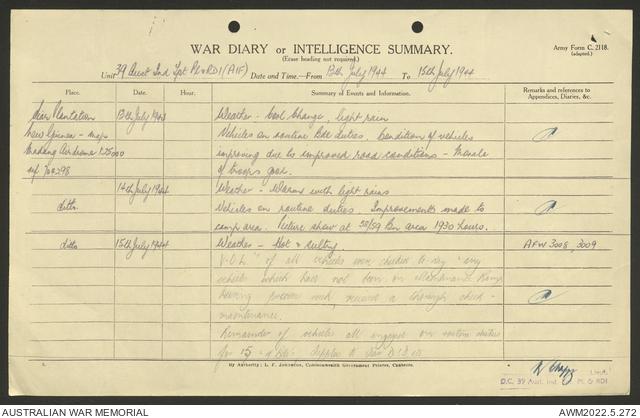 WAR DIARY or INTELLIGENCE SUMMARY.
(Erase heading not required.)
Army Form C. 2118.
(adapted.)
Unit 39 Aust Ind Tpt Pl (AIF) Date and Time.—From 13th July 1944 To 15th July 1944
Place. Date. Hour. Summary of Events and Information. Remarks and references to Appendices, Diaries, &c.
Plantation 13th July 194 Weather - Cool Change, light rain
New Guinea - map Vehicles on routine Bde duties. Condition of vehicles
Madang Airdrome 1:25000 improving due to improved road conditions - Morale
of troops good.
14th July 1944 Weather - Warm with light rains
ditto. Vehicles on routine duties. Improvements made to
camp area. Picture show at 58/59 Bn area 1930 hours.
ditto 15th July 1944 Weather - Hot & sultry. AFW 3008, 3009
of all vehicles were checked to-day any
vehicles which have not been on Maintenance Ramp
during previous week, receive a thorough check -
maintenance.
Remainder of vehicles all engaged on routine duties
for 15
By Authority: L. F. Johnston, Commonwealth Government Printer, Canberra.
Lieut.
O.C. 39 Aust. Ind. Pl.
AUSTRALIAN WAR MEMORIAL
AWM2022.5.272